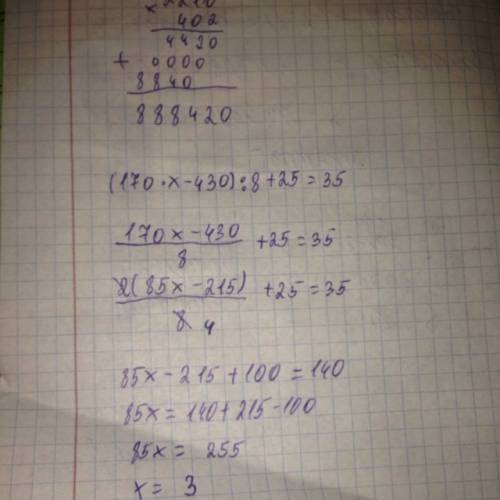 × 2210
402
4420
+ 0000
8840
888420
(170·x-430):8+25=35
170x-430
+25=35
8
2(85x-215)
+25=35
8 4
85x-215+100=140
85x=140+215-100
85x= 255
x= 3